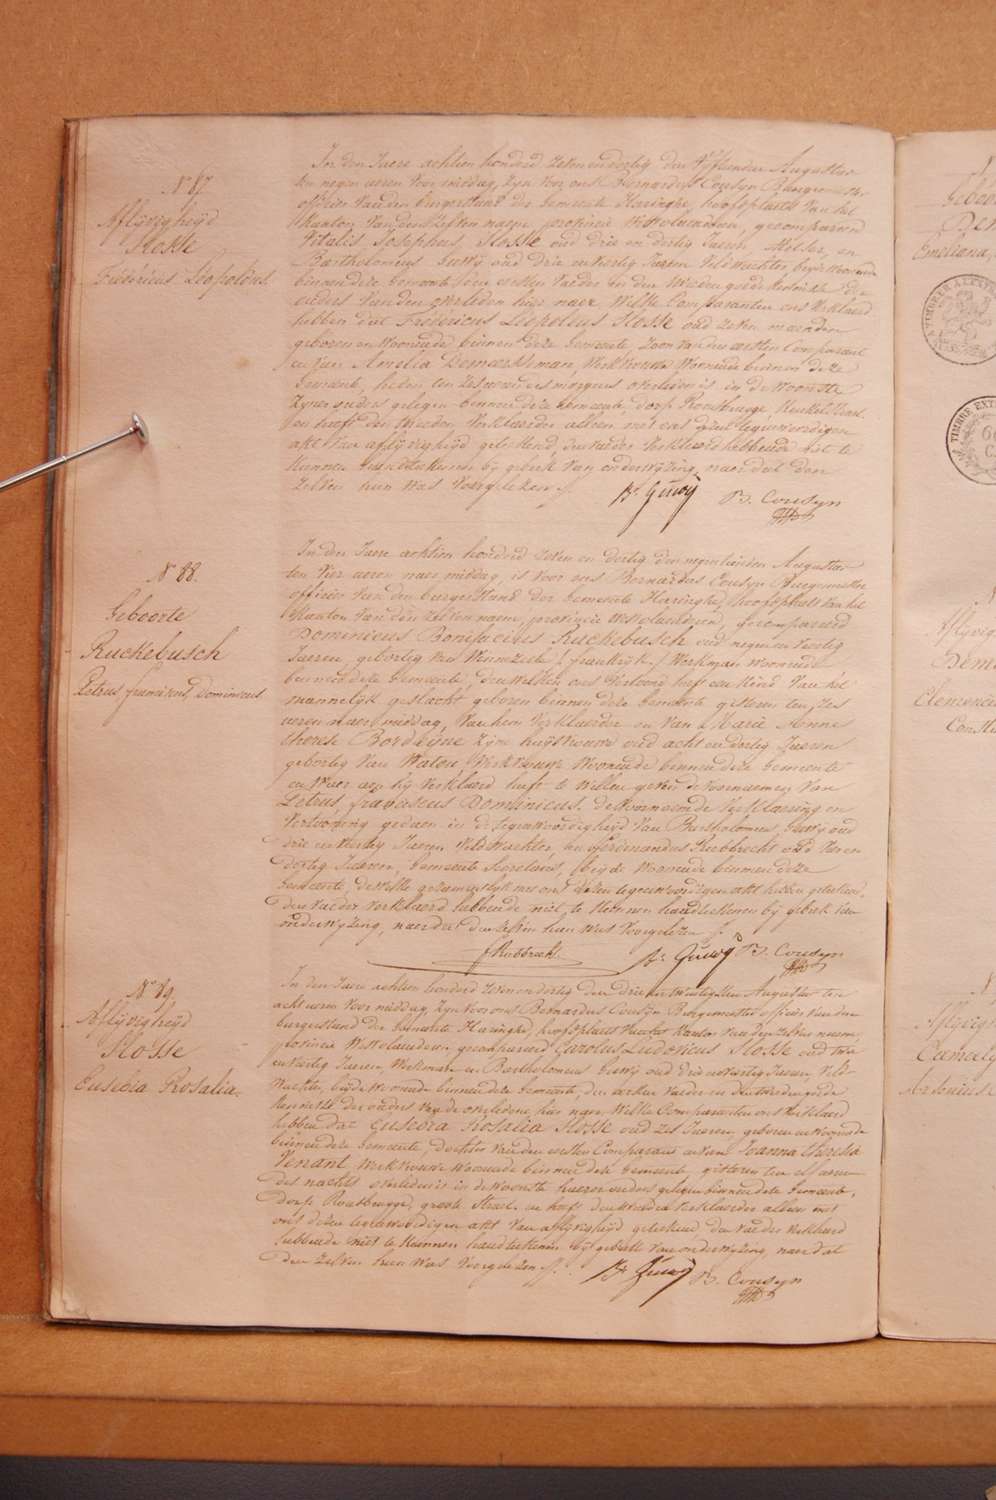 N° 87.
Aflijvigheijd
Slosse
Fredericus Leopoldus.
In den Jaere achtien honderd zeven en dertig den Vijftienden Augustus
ten negen ueren voor middag, Zijn voor ons Bernardus Cousyn Burgemeester
officier van den Burgerstand der Gemeente Haringhe, hoofdplaets van het
Kanton van den zelven naem, provincie Westvlaenderen, gecompareerd
Vitalis Josephus Slosse oud drie en dertig Jaeren en
Bartholomeus Guwij oud drie en veertig Jaeren Veldwachter, beijde woonende
binnen deze Gemeente, den eersten Vader en den tweeden goede kennisse der
ouders van den overleden hier naer, Welke Comparanten ons Verklaerd
hebben dat Fredericus Leopoldus Slosse oud zeven maenden
geboren en Woonende binnen deze Gemeente Zoon van den eersten Comparant
en van Amelia Demaesseman, Werkvrouw Woonende binnen deze
Gemeente, heden ten zes ueren des morgens overleden is in de Woonste
Zijner ouders gelegen binnen deze Gemeente, dorp Rousbrugge,
en heeft den tweeden Verklaerder alleen met ons deze tegenwoordigen
akt van aflijvigheijd geteekend, den vader Verklaerd hebbende niet te
kunnen handteekenen bij gebrek van onderwijzing, naer dat den
zelven hun was Voorgelezen /.
Br Guwij B. Cousyn
N° 88.
Geboorte
Ruckebusch
Petrus franciscus Dominicus
In den Jaere achtien honderd zeven en dertig den negentienden Augustus
ten vier ueren naer middag, is Voor ons Bernardus Cousyn Burgemeester
officier van den burgerstand der Gemeente Haringhe, hoofdplaets van het
Kanton van den zelven naem, provincie Westvlaenderen, gecompareerd
Dominicus Bonifacius Ruckebusch oud negen en veertig
Jaeren, geboortig van Winnezeele (frankrijk) Werkman woonende
binnen deze Gemeente, den welken ons Vertoond heeft een kind van het
mannelijk geslacht geboren binnen deze Gemeente gisteren ten zes
ueren naer middag, Van hem Verklaerder en Van Marie Anne
therese Bordeijne Zijne huijsvrouwe oud acht en dertig Jaeren
geboortig van Watou, Werkvrouw Woonende binnen deze Gemeente
en waer aen hij Verklaerd heeft te Willen geven de Voornaemen Van
Petrus franciscus Dominicus. de Voornoemde Verklaering en
Vertooning gedaen in de tegenwoordigheijd Van Bartholomeus Guwij oud
drie en veertig Jaeren, Veldwachter, en Ferdinandus Robbrecht oud
dertig Jaeren, Gemeente Secretaris, beijde Woonende binnen deze
Gemeente, de Welke gezamentlijk met ons dezen tegenwoordigen akt hebben geteekend,
den vader Verklaerd hebbende niet te kunnen handteekenen bij gebrek van
onderwijzing, naer dat den zelven hun was Voorgelezen /.
f Robbrecht. Br Guwij B. Cousyn
N° 89.
Aflijvigheijd
Slosse
Eusebia Rosalia.
In den Jaere achtien honderd zeven en dertig den drie en twintigsten Augustus ten
acht ueren voor middag, Zijn voor ons Bernardus Cousyn Burgemeester officier van den
burgerstand der Gemeente Haringhe, hoofdplaets van het Kanton van den zelven naem,
provincie Westvlaenderen, gecompareerd Carolus Ludovicus Slosse oud twee
en veertig Jaeren, Werkman en Bartholomeus Guwij oud drie en veertig Jaeren, Veld-
wachter, beijde woonende binnen deze Gemeente, den eersten vader en den tweeden goede
kennisse der ouders van de overledene hier naer, Welke Comparanten ons Verklaerd
hebben dat Eusebia Rosalia Slosse oud zes Jaeren, geboren en Woonende
binnen deze Gemeente, dochter van den eersten Comparant en van Joanna theresia
Venant, Werkvrouw Woonende binnen deze Gemeente, gisteren ten elf ueren
des nachts overleden is in de woonste haerer ouders gelegen binnen deze Gemeente,
dorp Rousbrugge, groote Straet, en heeft den tweeden Verklaerder alleen met
ons dezen tegenwoordigen akt van aflijvigheijd geteekend, den vader Verklaerd
hebbende niet te kunnen handteekenen bij gebrek van onderwijzing, naer dat
den zelven hun was Voorgelezen /.
Br Guwij B. Cousyn